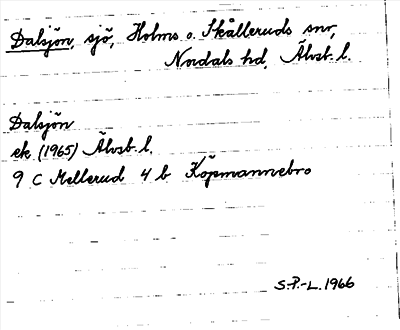 Dalsjön, sjö, Holms o. Skålleruds snr,
Nordals hd, Älvsb. l.
Dalsjön
ek. (1965) Älvsb. l.
9 C Mellerud 4 b Köpmannebro
S.P.-L. 1966